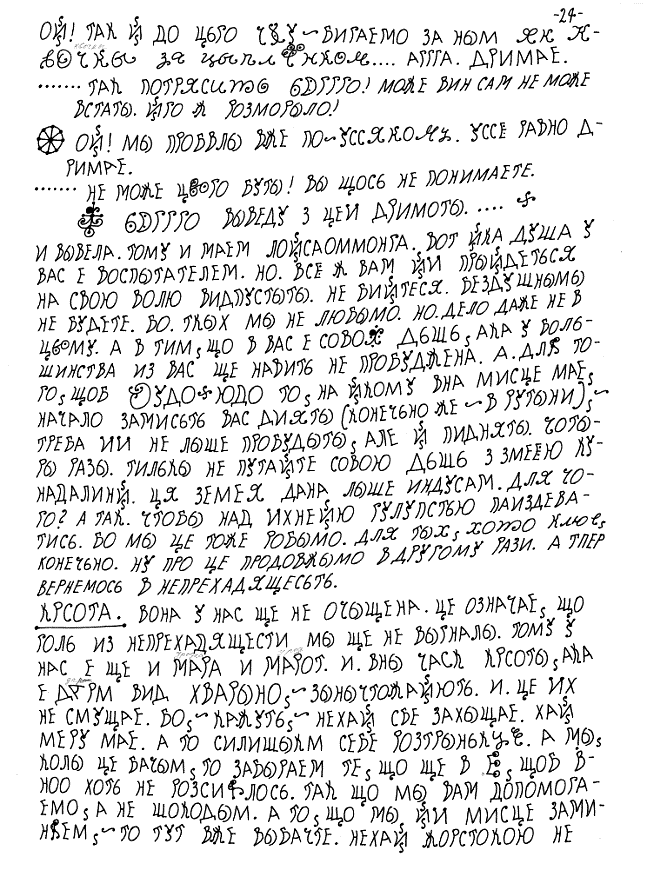 -24-
ОЙ! ТАК Й ДО ЦЬОГО ЧУУ~БИГАЕМО ЗА НЫМ ЯК К-
ВОЧКЫ ЗА ЦЫПЛЕНКОМ.... АГГА. ДРИМАЕ.
....... ТАК ПОТРЯСИТЬ МОЖЕ ВИН САМ НЕ МОЖЕ
ВСТАТЫ. ЙОГО Ж РОЗМОРЫЛО!
ОЙ! МЫ ПРОБВЛЫ ВЖЕ ПО~УССЯКОМЪ. УССЕ РАВНО Д-
РИМАЕ.
....... НЕ МОЖЕ ЦЬОГО БУТЫ! ВЫ ЩОСЬ НЕ ПОНИМАЕТЕ.
ВЫВЕДУ З ЦЕИ ДРИМОТЫ. ....
И ВЫВЕЛА. ТОМУ И МАЕМ ВОТ ЙКА ДУША У
ВАС Е ВОСПЫТАТЕЛЕМ. НО. ВСЕ Ж ВАМ ЙИ ПРЫЙДЕТЬСЯ
НА СВОЮ ВОЛЮ ВИДПУСТЫТЫ. НЕ БИЙТЕСЯ. БЕЗДУШНЫМЫ
НЕ БУДЕТЕ. БО. ТКЫХ МЫ НЕ ЛЮБЫМО. НО. ДЕЛО ДАЖЕ НЕ В
ЦЬОМУ. А В ТИМ, ЩО В ВАС Е СОВОЯ ДЬШЬ, АКА У БОЛЬ-
ШИНСТВА ИЗ ВАС ЩЕ НАВИТЬ НЕ ПРОБУДЖЕНА. А. ДЛЯ ТО-
ГО, ЩОБ ТО, НА ЙКОМУ ВНА МИСЦЕ МАЕ,
НАЧАЛО ЗАМИСЬТЬ ВАС ДИЯТЫ (КОНЕЧЬНО ЖЕ ~ В РУТЫНИ),~
ТРЕБА ИИ НЕ ЛЫШЕ ПРОБУДЫТЫ, АЛЕ Й ПИДНЯТЫ. ЧОТЫ-
РЫ РАЗЫ. ТИЛЬКЫ НЕ ПУТАЙТЕ СОВОЮ ДЬШЬ З ЗМЕЕЮ КУ-
НАДАЛИНЙ. ЦЯ ЗЕМЕЯ ДАНА ЛЫШЕ ИНДУСАМ. ДЛЯ ЧО-
ГО? А ТАК. ЧТОБЫ НАД ИХНЕЙЮ ГУЛУПСТЬЮ ПАИЗДЕВА-
ТИСЬ. БО МЫ ЦЕ ТОЖЕ РОБЫМО. ДЛЯ ТЫХ, ХОТО КЛЮЕ,
КОНЕЧЬНО. НУ ПРО ЦЕ ПРОДОВЖЫМО В ДРУГОМУ РАЗИ. А ТПЕР
ВЕРНЕМОСЬ В НЕПРЕХАДЯЩЕСЬТЬ.
КРСОТА. ВОНА У НАС ЩЕ НЕ ОЧЫЩЕНА. ЦЕ ОЗНАЧАЕ, ЩО
ГОЛЬ ИЗ НЕПРЕХАДЯЩЕСТИ МЫ ЩЕ НЕ ВЫГНАЛЫ. ТОМУ У
НАС Е ЩЕ И МАРА И МАРОТ. И. ВНЫ ЧАСЬ КРСОТЫ, АКА
Е ВИД ХВАРЫНО,~ЗЫНЫЧТОЖАЙЮТЬ. И. ЦЕ ИХ
НЕ СМУЩАЕ. БО,~КАЖУТЬ,~НЕХАЙ СБЕ ЗАХЫЩАЕ. ХАЙ
МЕРУ МАЕ. А ТО СИЛИЩЫКМ СЕБЕ А МЫ,
КОЛЫ ЦЕ БАЧЫМ, ТО ЗАБЫРАЕМ ТЕ, ЩО ЩЕ В Е, ЩОБ В-
НОО ХОТЬ НЕ ТАК ЩО МЫ ВАМ ДОПОМОГА-
ЕМО, А НЕ ШОКОДЫМ. А ТО, ЩО МЫ ЙИ МИСЦЕ ЗАМИ-
НЯЕМ,~ТО ТУТ ВЖЕ ВЫБАЧТЕ. НЕХАЙ ЖОРСТОКОЮ НЕ